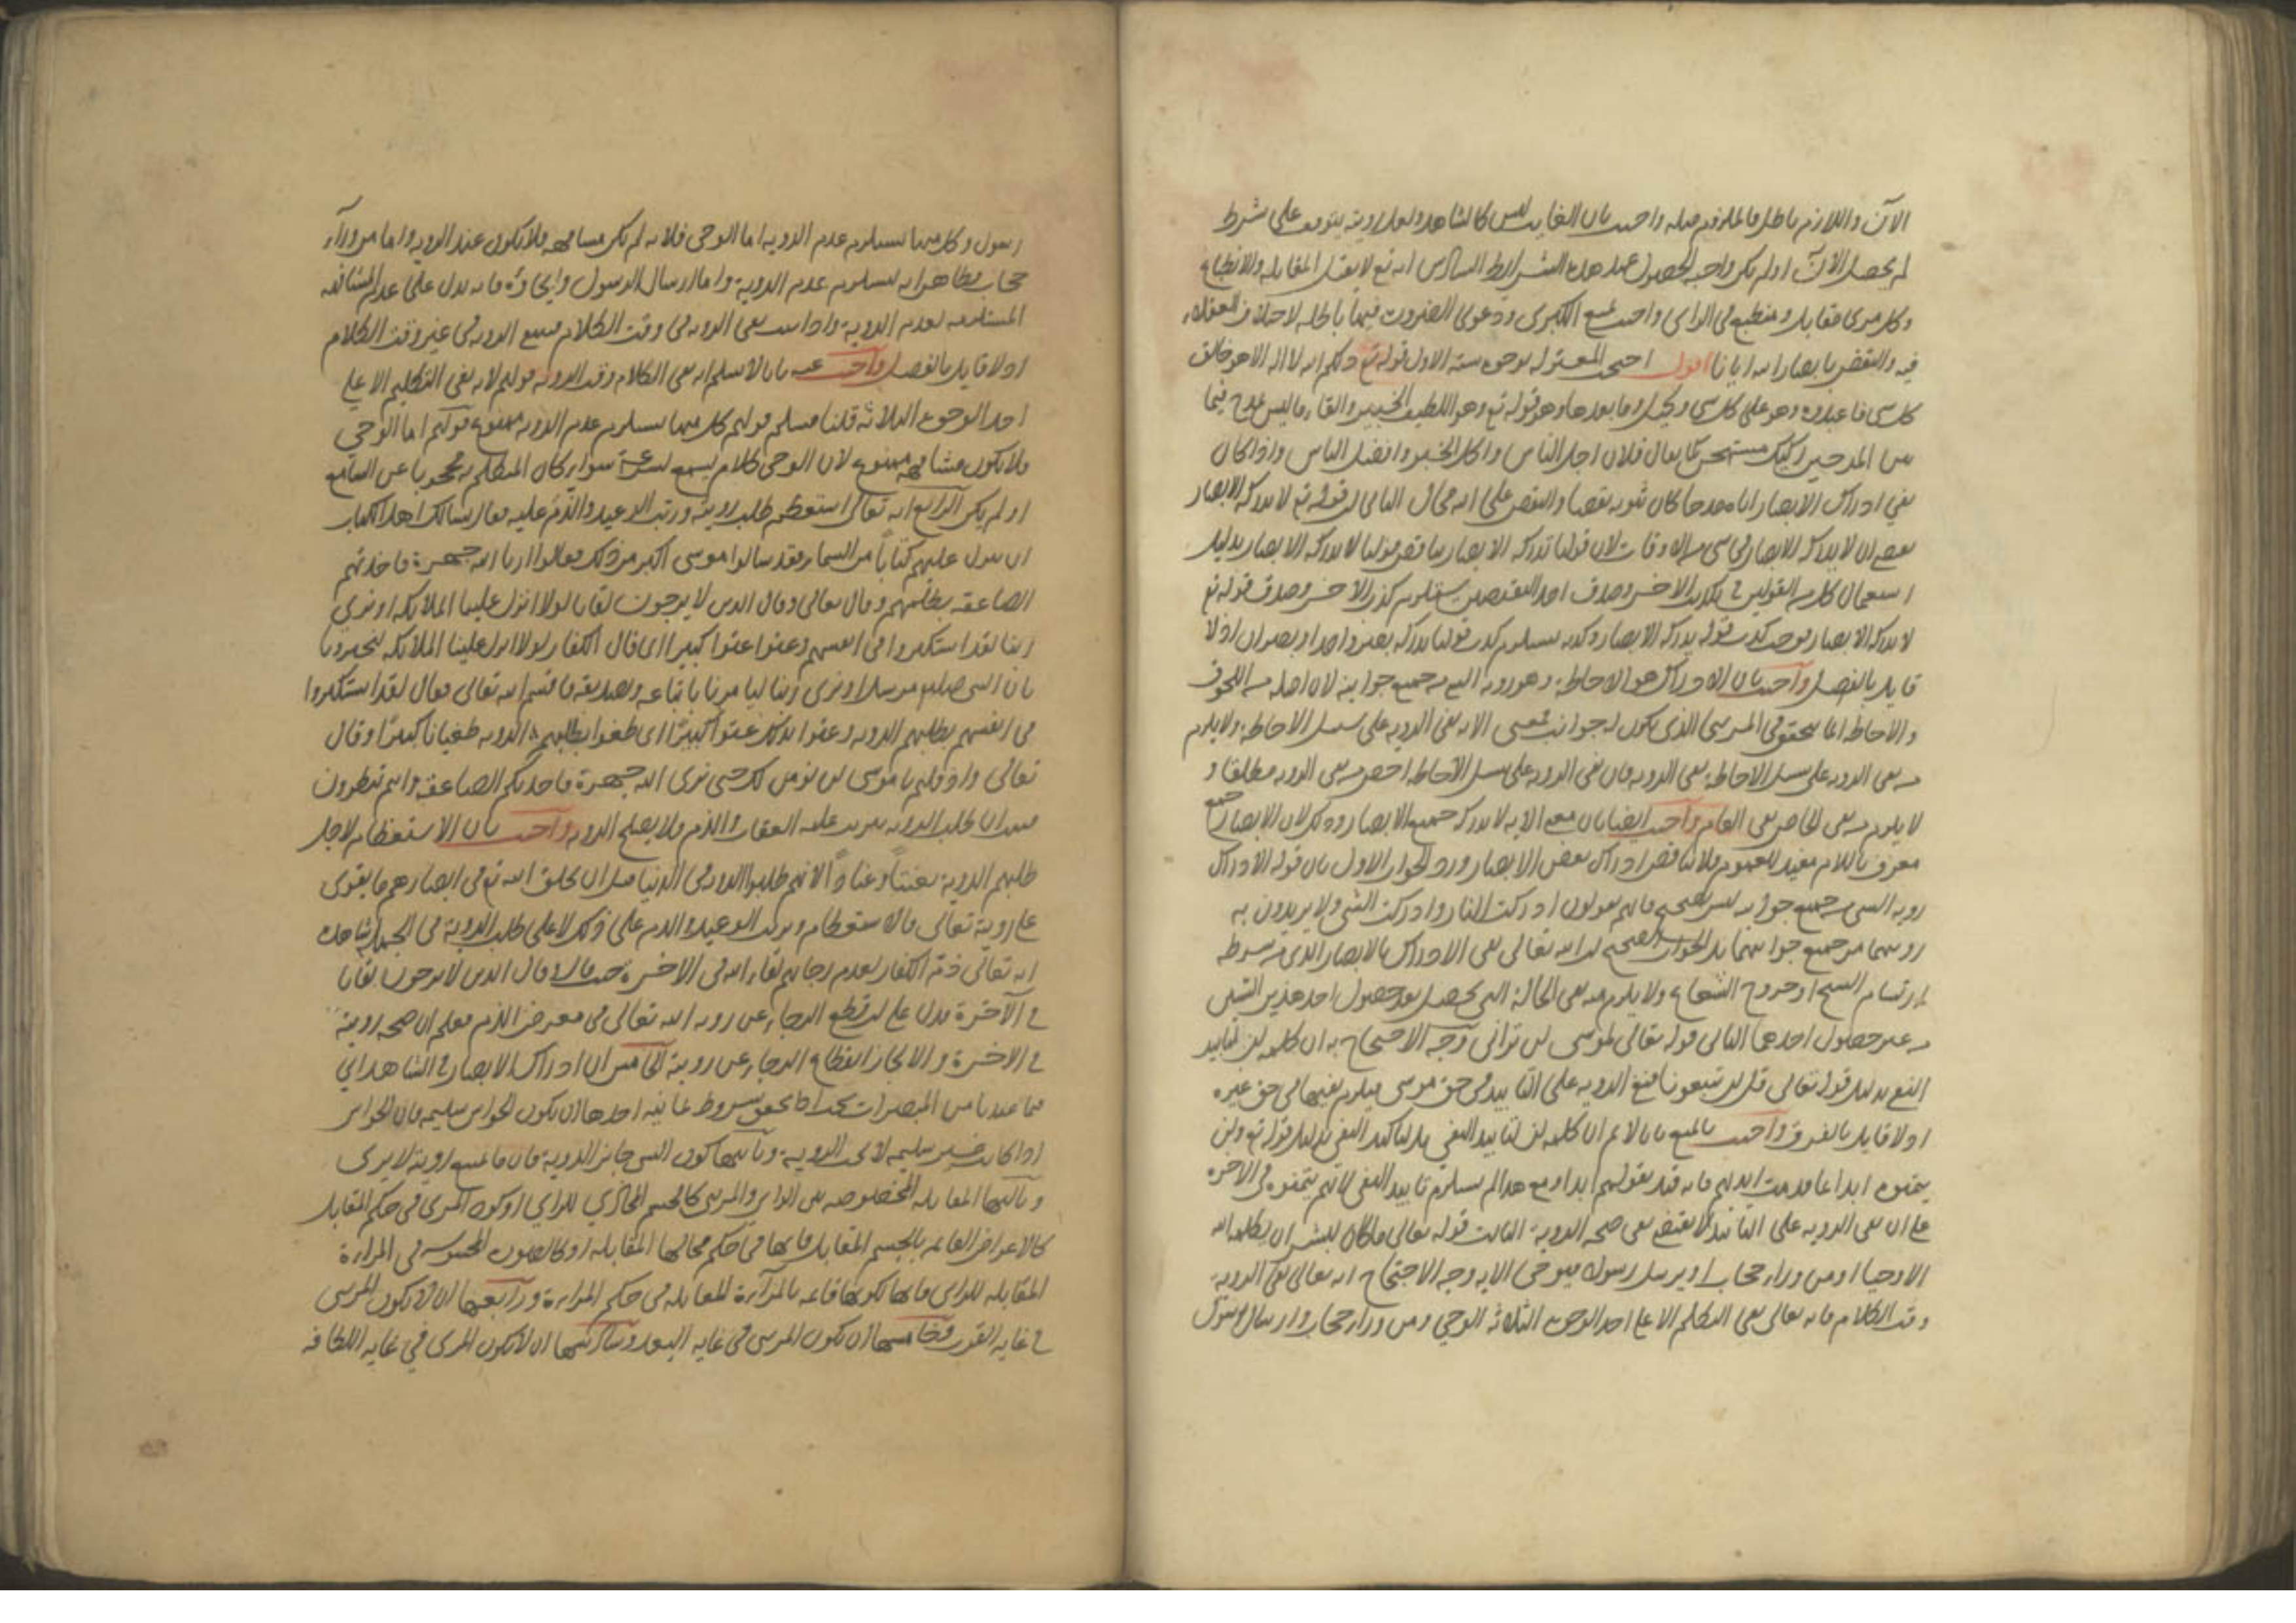 الآن واللازم باطل فالملزوم مثله واجيب بان الغايب ليس كالشاهد ولعل رويته يتوقف على شرط
لم يحصل الآن او لم يكن واجب الحصول عند هذه الشرايط السادس انه تع لا يقبل المقابلة والانطباع
وكل مرى مقابل ومنطبع في الراى واجيب بمنع الكبرى ودعوى الضرورة فيها باطلة لاختلاف العقلاء
فيه والنقض بابصار الله ايانا اقول احتج المعتزلة بوجوه ستة الاول قوله تع ذلكم الله لا اله الا هو خالق
كل شى فاعبدوه وهو على كل شى وكيل وما بعدها وهو قوله تع وهو اللطيف الخبير والقاء ما ليس بمدح فيما
بين المدحين ركيك مستهجن كما يقال فلان اجل الناس واكل الخبز وافضل الناس واذا كان
نفي ادراك الابصار اياه مدحا كان ثبوته نقصا والنقص على الله محال الثانى ان قوله تع لا تدركه الابصار
يقتضى ان لا تدركه الابصار في شى من الاوقات لان قولنا تدركه الابصار يناقض قولنا لا تدركه الابصار بدليل
استعمال كل من القولين في تكذيب الاخر وصدق احد النقيضين يستلزم كذب الاخر وصدق قوله تع
لا تدركه الابصار يوجب كذب قولنا يدركه الابصار وكذبه يستلزم كذب قولنا يدركه بصر واحد او بصران اذ لا
قايل بالفصل واجيب بان الادراك هو الاحاطة وهو روية الشى من جميع جوانبه لان اصله من اللحوق
والاحاطة انما يتحقق في المرئى الذى يكون له جوانب فمعنى الاية نفى الروية على سبيل الاحاطة ولا يلزم
من نفى الروية على سبيل الاحاطة نفى الروية فان نفى الروية على سبيل الاحاطة اخص من نفى الروية مطلقا و
لا يلزم من نفى الخاص نفى العام واجيب ايضا بان معنى الاية لا تدركه جميع الابصار وذلك لان الابصار جمع
معرف باللام مفيد للعموم فلا يناقض ادراك بعض الابصار ورد الجواب الاول بان قوله الادراك
روية الشى من جميع جوانبه ليس بصحيح فانهم يقولون ادركت النار وادركت الشى ولا يريدون به
رويتهما من جميع جوانبهما بل الجواب الصحيح ان الله تعالى نفى الادراك بالابصار الذى من شرطه
ارتسام الشبح او خروج الشعاع ولا يلزم منه نفى الحالة التى تحصل بعد حصول احد هذين الشيئين
من غير حصول احدهما الثانى قوله تعالى لموسى لن ترانى وجه الاحتجاج به ان كلمة لن لتابيد
النفى بدليل قوله تعالى قل لن تتبعونا فنفى الروية على التابيد في حق موسى فيلزم نفيها في حق غيره
اذ لا قايل بالفرق واجيب بالمنع بانا لا نم ان كلمة لن لتابيد النفي بل لتاكيد النفي بدليل قوله تع ولن
يتمنوه ابدا بما قدمت ايديهم فانه قيد بقولهم ابدا ومع هذا لم يستلزم تابيد النفى لانهم يتمنوه في الاخرة
على ان نفى الروية على التابيد لا يقتضى نفى صحة الروية الثالث قوله تعالى وما كان لبشر ان يكلمه الله
الا وحيا او من وراء حجاب او يرسل رسولا فيوحى الاية وجه الاحتجاج انه تعالى نفى الروية
وقت الكلام فانه تعالى نفى التكلم الا على احد الوجوه الثلاثة الوحي ومن وراء حجاب وارسال رسول
رسول وكل منها يستلزم عدم الروية اما الوحى فلانه لم يكن مشافهة فلا يكون عند الروية واما من وراء
حجاب فظاهر انه يستلزم عدم الروية واما ارسال الرسول وايحاؤه فانه يدل على عدم المشافهة
المستلزمة لعدم الروية واذا ثبت نفى الروية في وقت الكلام فينتفى الروية في غير وقت الكلام
اذ لا قايل بالفصل واجيب عنه بانا لا نسلم انه نفى الكلام وقت الروية قولهم لانه نفى التكليم الا على
احد الوجوه الثلاثة قلنا مسلم قولهم كل منها يستلزم عدم الروية ممنوع قولكم اما الوحي
فلا يكون مشافهة ممنوع لان الوحى كلام يسمع بسرعة سواء كان المتكلم به محجوبا عن السامع
او لم يكن الرابع انه تعالى استعظم طلب رويته ورتب الوعيد والذم عليه فقال يسالك اهل الكتاب
ان تنزل عليهم كتابا من السماء فقد سالوا موسى اكبر من ذلك فقالوا ارنا الله جهرة فاخذتهم
الصاعقة بظلمهم وقال تعالى وقال الذين لا يرجون لقانا لولا انزل علينا الملائكة او نرى
ربنا لقد استكبروا في انفسهم وعتوا عتوا كبيرا اى قال الكفار لولا انزل علينا الملائكة ليخبرونا
بان النبى صلعم مرسل او نرى ربنا ليامرنا باتباعه وتصديقه فاقسم الله تعالى فقال لقد استكبروا
في انفسهم بطلبهم الروية وعتوا بذلك عتوا كبيرا اى طغوا بطلبهم الروية طغيانا كبيرا وقال
تعالى واذ قلتم يا موسى لن نومن لك حتى نرى الله جهرة فاخذتكم الصاعقة وانتم تنظرون
فثبت ان طلب الروية يترتب عليه العقاب والذم فلا يصلح الروية واجيب بان الاستعظام لاجل
طلبهم الروية تعنتا وعنادا لانهم طلبوا الروية في الدنيا قبل ان يخلق الله تع في ابصارهم ما يقوى
على روية تعالى فالاستعظام وترتب الوعيد والذم على ذلك لا على طلب الروية في الجملة شاهده
انه تعالى ذم الكفار لعدم رجائهم لقاء الله في الاخرة حيث قال وقال الذين لا يرجون لقانا
في الآخرة فدل على ان قطع الرجاء عن روية الله تعالى في معرض الذم فعلم ان صحة رويته
في الاخرة والا لجاز انقطاع الرجاء عن روية الخامس ان ادراك الابصار في الشاهد اي
فيما عندنا من المبصرات يجب اذا تحقق شروط ثمانية احدها ان يكون الحواس سليمة فان الحواس
اذا كانت غير سليمة لا تجب الروية وثانيها كون الشى جايز الروية فان ما يمتنع رويته لا يرى
وثالثها المقابلة المخصوصة بين الراى والمرئى كالجسم المحاذي للراي او كون المرى في حكم المقابل
كالاعراض القائمة بالجسم المقابل فانها في حكم محالها المقابلة او كالصورة المحسوسة في المراءة
المقابلة للراى فانها لكونها قائمة بالمرآة المقابلة في حكم المراءة ورابعها ان لا يكون المرئى
في غاية القرب وخامسها ان لا يكون المرئى في غاية البعد وسادسها ان لا يكون المرى في غاية اللطافة